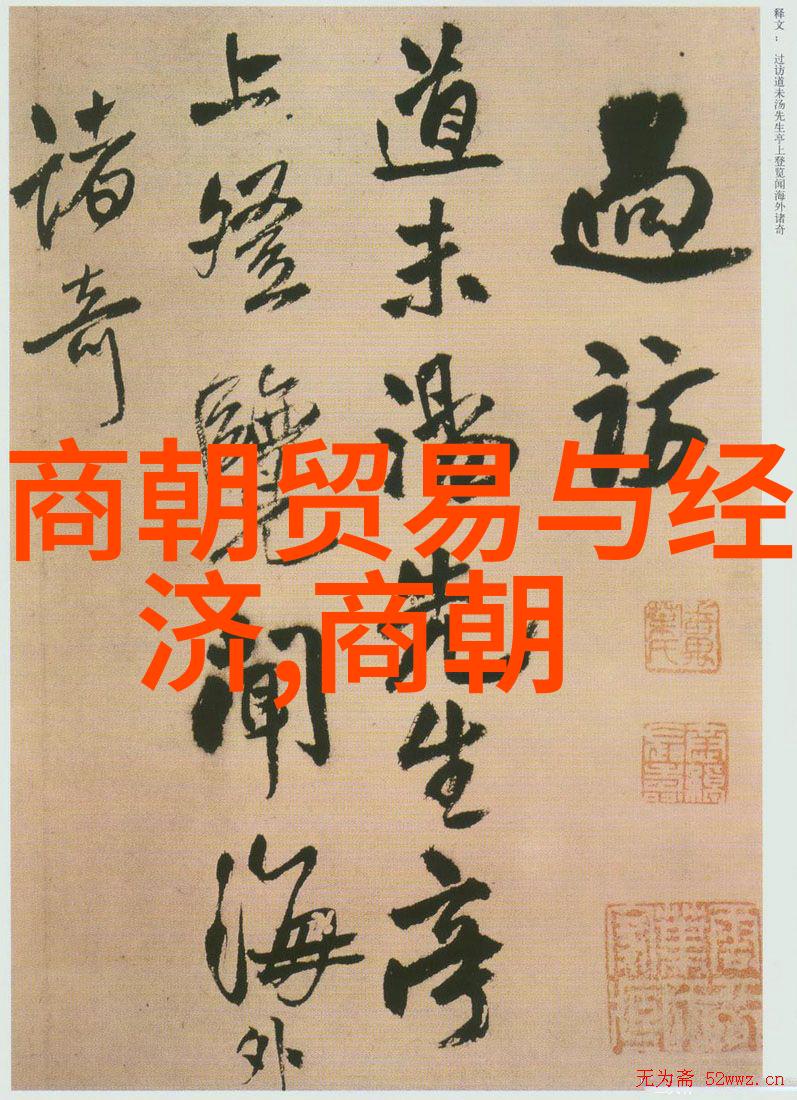 释文： 过访道未汤先生亭上登览闻海外诸奇
過訪
道未湯先生亭
上登覽聞海外
诸奇
商朝贸易与经
济,商朝
无为斋 52wwz.cn